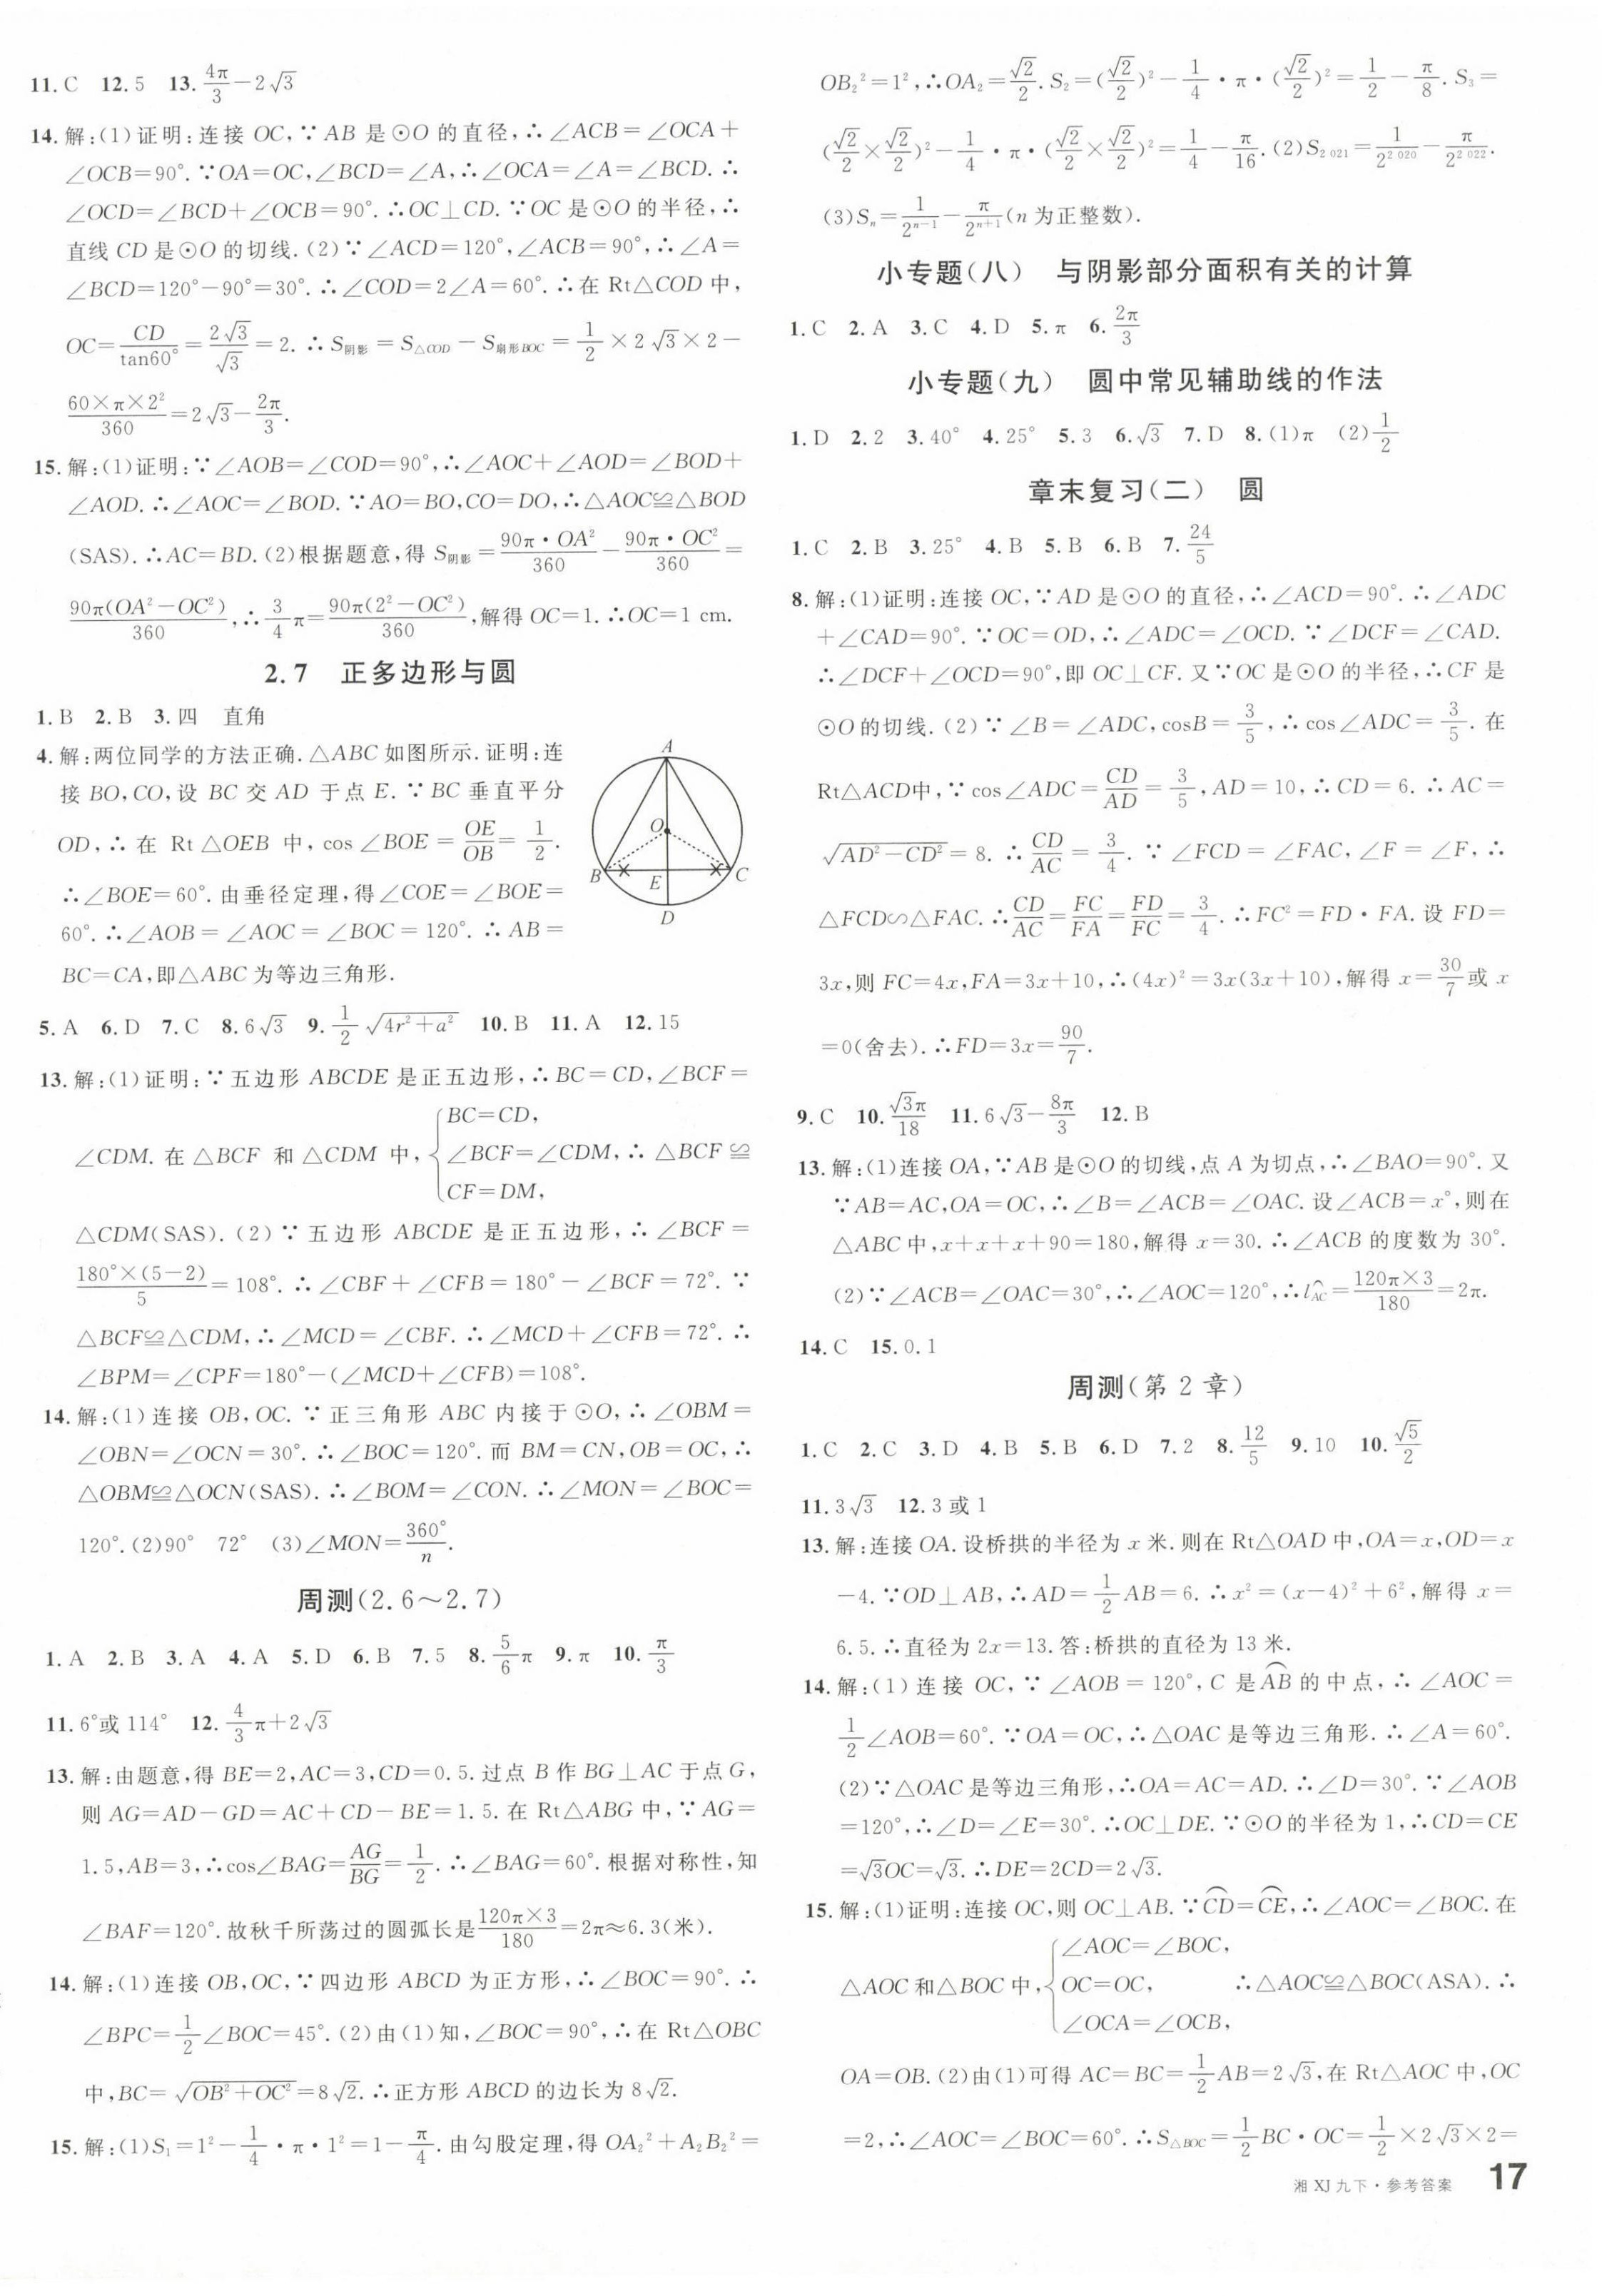 11. C 12. 5 13. 4π/3－2√3
14. 解:(1)证明:连接 OC,∵AB 是⊙O 的直径,∴∠ACB＝∠OCA＋
∠OCB＝90°.∵OA＝OC,∠BCD＝∠A,∴∠OCA＝∠A＝∠BCD.∴
∠OCD＝∠BCD＋∠OCB＝90°.∴OC⊥CD.∵OC 是⊙O 的半径,∴
直线 CD 是⊙O 的切线.(2)∵∠ACD＝120°,∠ACB＝90°,∴∠A＝
∠BCD＝120°－90°＝30°.∴∠COD＝2∠A＝60°.∴在 Rt△COD 中,
OC＝CD/tan60°＝2√3/√3＝2.∴S阴影＝S△COD－S扇形BOC＝1/2×2√3×2－
60×π×2²/360＝2√3－2π/3.
15. 解:(1)证明:∵∠AOB＝∠COD＝90°,∴∠AOC＋∠AOD＝∠BOD＋
∠AOD.∴∠AOC＝∠BOD.∵AO＝BO,CO＝DO,∴△AOC≌△BOD
(SAS).∴AC＝BD.(2)根据题意,得 S阴影＝90π·OA²/360－90π·OC²/360＝
90π(OA²－OC²)/360,∴3/4π＝90π(2²－OC²)/360,解得 OC＝1.∴OC＝1 cm.
2.7 正多边形与圆
1. B 2. B 3. 四 直角
4. 解:两位同学的方法正确.△ABC 如图所示.证明:连
接 BO,CO,设 BC 交 AD 于点 E.∵BC 垂直平分
OD,∴在 Rt△OEB 中,cos∠BOE＝OE/OB＝1/2.
∴∠BOE＝60°.由垂径定理,得∠COE＝∠BOE＝
60°.∴∠AOB＝∠AOC＝∠BOC＝120°.∴AB＝
BC＝CA,即△ABC 为等边三角形.
A
O
B
E
C
D
5. A 6. D 7. C 8. 6√3 9. 1/2√(4r²＋a²) 10. B 11. A 12. 15
13. 解:(1)证明:∵五边形 ABCDE 是正五边形,∴BC＝CD,∠BCF＝
∠CDM.在△BCF 和△CDM 中,{BC＝CD,
∠BCF＝∠CDM,∴△BCF≌
CF＝DM,
△CDM(SAS).(2)∵五边形 ABCDE 是正五边形,∴∠BCF＝
180°×(5－2)/5＝108°.∴∠CBF＋∠CFB＝180°－∠BCF＝72°.∵
△BCF≌△CDM,∴∠MCD＝∠CBF.∴∠MCD＋∠CFB＝72°.∴
∠BPM＝∠CPF＝180°－(∠MCD＋∠CFB)＝108°.
14. 解:(1)连接 OB,OC.∵正三角形 ABC 内接于⊙O,∴∠OBM＝
∠OBN＝∠OCN＝30°.∴∠BOC＝120°.而 BM＝CN,OB＝OC,∴
△OBM≌△OCN(SAS).∴∠BOM＝∠CON.∴∠MON＝∠BOC＝
120°.(2)90° 72° (3)∠MON＝360°/n.
周测(2.6～2.7)
1. A 2. B 3. A 4. A 5. D 6. B 7. 5 8. 5/6π 9. π 10. π/3
11. 6°或 114° 12. 4/3π＋2√3
13. 解:由题意,得 BE＝2,AC＝3,CD＝0.5.过点 B 作 BG⊥AC 于点 G,
则 AG＝AD－GD＝AC＋CD－BE＝1.5.在 Rt△ABG 中,∵AG＝
1.5,AB＝3,∴cos∠BAG＝AG/BG＝1/2.∴∠BAG＝60°.根据对称性,知
∠BAF＝120°.故秋千所荡过的圆弧长是120π×3/180＝2π≈6.3(米).
14. 解:(1)连接 OB,OC,∵四边形 ABCD 为正方形,∴∠BOC＝90°.∴
∠BPC＝1/2∠BOC＝45°.(2)由(1)知,∠BOC＝90°,∴在 Rt△OBC
中,BC＝√(OB²＋OC²)＝8√2.∴正方形 ABCD 的边长为 8√2.
15. 解:(1)S₁＝1²－1/4·π·1²＝1－π/4.由勾股定理,得 OA₂²＋A₂B₂²＝
OB₂²＝1²,∴OA₂＝√2/2.S₂＝(√2/2)²－1/4·π·(√2/2)²＝1/2－π/8.S₃＝
(√2/2×√2/2)²－1/4·π·(√2/2×√2/2)²＝1/4－π/16.(2)S₂ ₀₂₁＝1/2^(2 020)－π/2^(2 022).
(3)Sₙ＝1/2ⁿ⁻¹－π/2ⁿ⁺¹(n 为正整数).
小专题(八) 与阴影部分面积有关的计算
1. C 2. A 3. C 4. D 5. π 6. 2π/3
小专题(九) 圆中常见辅助线的作法
1. D 2. 2 3. 40° 4. 25° 5. 3 6. √3 7. D 8. (1)π (2)1/2
章末复习(二) 圆
1. C 2. B 3. 25° 4. B 5. B 6. B 7. 24/5
8. 解:(1)证明:连接 OC,∵AD 是⊙O 的直径,∴∠ACD＝90°.∴∠ADC
＋∠CAD＝90°.∵OC＝OD,∴∠ADC＝∠OCD.∵∠DCF＝∠CAD.
∴∠DCF＋∠OCD＝90°,即 OC⊥CF.又∵OC 是⊙O 的半径,∴CF 是
⊙O 的切线.(2)∵∠B＝∠ADC,cosB＝3/5,∴cos∠ADC＝3/5.在
Rt△ACD中,∵cos∠ADC＝CD/AD＝3/5,AD＝10,∴CD＝6.∴AC＝
√(AD²－CD²)＝8.∴CD/AC＝3/4.∵∠FCD＝∠FAC,∠F＝∠F,∴
△FCD∽△FAC.∴CD/AC＝FC/FA＝FD/FC＝3/4.∴FC²＝FD·FA.设 FD＝
3x,则 FC＝4x,FA＝3x＋10,∴(4x)²＝3x(3x＋10),解得 x＝30/7或 x
＝0(舍去).∴FD＝3x＝90/7.
9. C 10. √3π/18 11. 6√3－8π/3 12. B
13. 解:(1)连接 OA,∵AB 是⊙O 的切线,点 A 为切点,∴∠BAO＝90°.又
∵AB＝AC,OA＝OC,∴∠B＝∠ACB＝∠OAC.设∠ACB＝x°,则在
△ABC 中,x＋x＋x＋90＝180,解得 x＝30.∴∠ACB 的度数为 30°.
(2)∵∠ACB＝∠OAC＝30°,∴∠AOC＝120°,∴l⌒AC＝120π×3/180＝2π.
14. C 15. 0.1
周测(第 2 章)
1. C 2. C 3. D 4. B 5. B 6. D 7. 2 8. 12/5 9. 10 10. √5/2
11. 3√3 12. 3 或 1
13. 解:连接 OA.设桥拱的半径为 x 米.则在 Rt△OAD 中,OA＝x,OD＝x
－4.∵OD⊥AB,∴AD＝1/2AB＝6.∴x²＝(x－4)²＋6²,解得 x＝
6.5.∴直径为 2x＝13.答:桥拱的直径为 13 米.
14. 解:(1)连接 OC,∵∠AOB＝120°,C 是⌒AB的中点,∴∠AOC＝
1/2∠AOB＝60°.∵OA＝OC,∴△OAC 是等边三角形.∴∠A＝60°.
(2)∵△OAC 是等边三角形,∴OA＝AC＝AD.∴∠D＝30°.∵∠AOB
＝120°,∴∠D＝∠E＝30°.∴OC⊥DE.∵⊙O 的半径为 1,∴CD＝CE
＝√3OC＝√3.∴DE＝2CD＝2√3.
15. 解:(1)证明:连接 OC,则 OC⊥AB.∵⌒CD＝⌒CE,∴∠AOC＝∠BOC.在
△AOC 和△BOC 中,{∠AOC＝∠BOC,
OC＝OC, ∴△AOC≌△BOC(ASA).∴
∠OCA＝∠OCB,
OA＝OB.(2)由(1)可得 AC＝BC＝1/2AB＝2√3,在 Rt△AOC 中,OC
＝2,∴∠AOC＝∠BOC＝60°.∴S△BOC＝1/2BC·OC＝1/2×2√3×2＝
湘 XJ 九下·参考答案 17